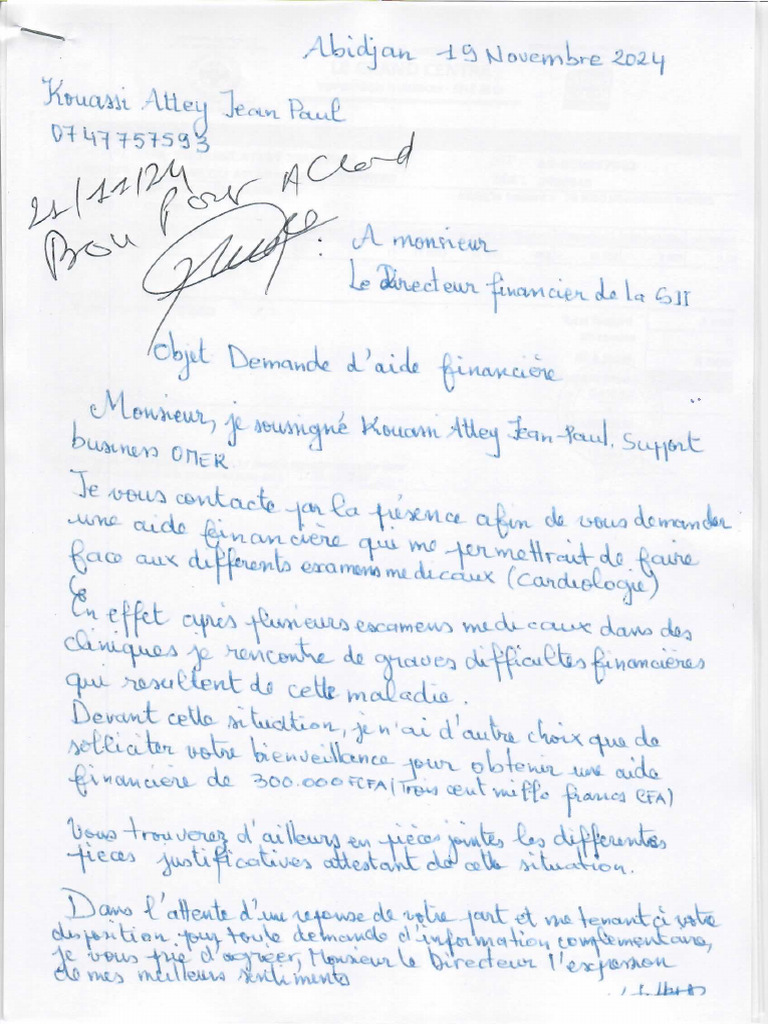 Abidjan 19 Novembre 2024
Kouassi Attey Jean Paul
0747757593
21/11/24
Bon Pour Accord
A monsieur
Le Directeur financier de la SII
Objet Demande d'aide financière
Monsieur, je soussigné Kouassi Attey Jean-Paul. Support
business OMER
Je vous contacte par la présence afin de vous demander
une aide financière qui me permettrait de faire
face aux differents examens medicaux (Cardiologie)
En effet après plusieurs examens medicaux dans des
cliniques je rencontre de graves difficultes financières
qui resultent de cette maladie.
Devant cette situation, je n'ai d'autre choix que de
solliciter votre bienveillance pour obtenir une aide
financière de 300.000FCFA (Trois cent mille francs CFA)
Vous trouverez d'ailleurs en pièces jointes les differentes
pièces justificatives attestant de cette situation.
Dans l'attente d'une reponse de votre part et me tenant à votre
disposition pour toute demande d'information complementaire,
je vous prie d'agreer, Monsieur le Directeur l'expression
de mes meilleurs sentiments